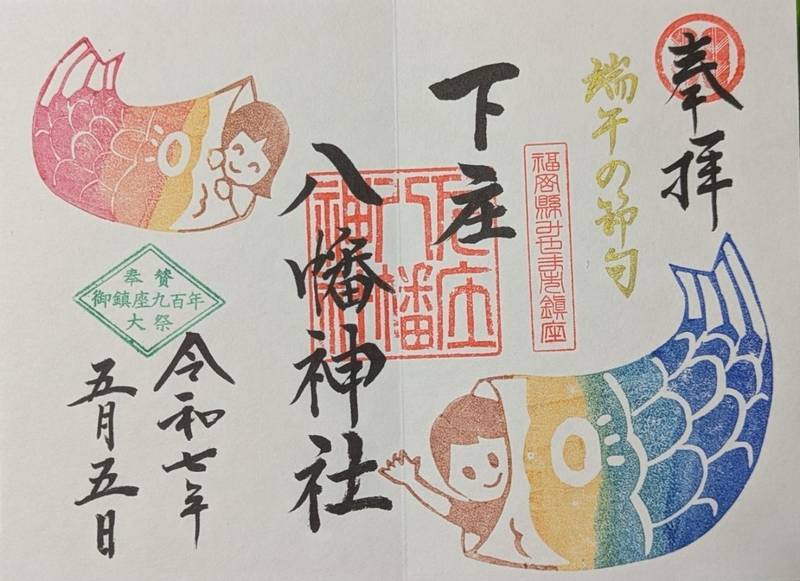 奉拝
端午の節句
福岡縣みやま市鎮座
下庄
八幡神社
下庄八幡神社
奉賛
御鎮座九百年
大祭
令和七年
五月五日